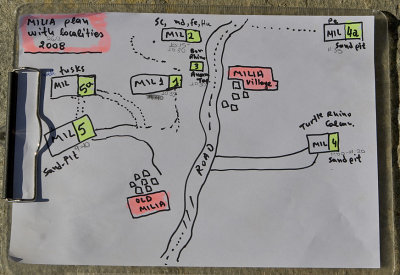 MILIA plan
with localities
2008
Sc, md, Fe, Hu
MIL 2
Pe
MIL 4a
Sand pit
Bor
Rhino
3
MILIA
village
tusks
MIL 5a
MIL 1 1
MIL 5
Sand-pit
Turtle Rhino
MIL 4
Sand pit
ROAD
OLD
MILIA